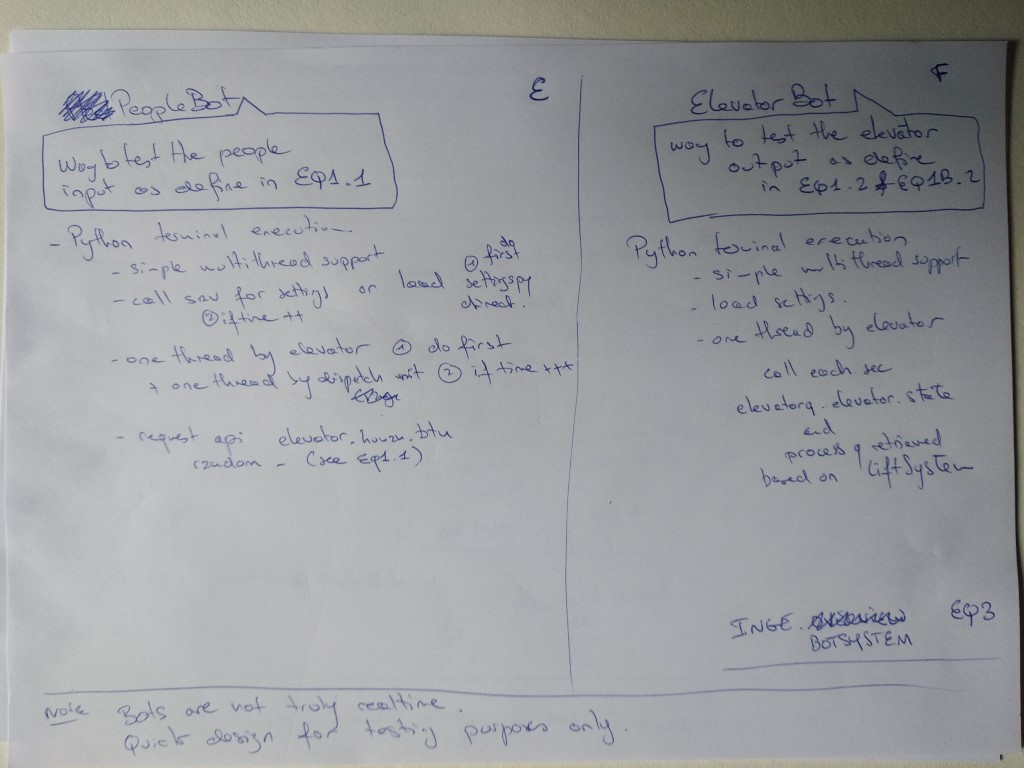 E
PeopleBot
way to test the people
input as define in EQ1.1
- Python terminal execution.
- simple multithread support
- call srv for settings or load settings.py direct. ① do first
② if time ++
- one thread by elevator ① do first
+ one thread by dispatch unit ② if time +++
- request api elevator.human.btn
random - (see EQ1.1)
F
Elevator Bot
way to test the elevator
output as define
in EQ1.2 & EQ1B.2
Python terminal execution
- simple multithread support
- load settings.
- one thread by elevator
call each sec
elevatorq.elevator.state
and
process q retrieved
based on LiftSystem
INGE. EQ3
BOTSYSTEM
Note Bots are not truly realtime.
Quick design for testing purposes only.